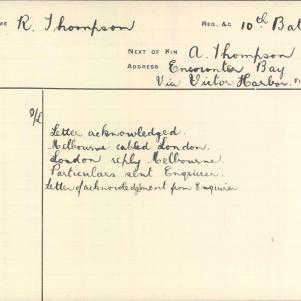 ME R. Thompson REG. &C 10th Bat
NEXT OF KIN A. Thompson
ADDRESS Encounter Bay
Via Victor Harbor. F
Letter acknowledged.
Melbourne cabled London.
London reply Melbourne.
Particulars sent Enquirer.
Letter of acknowledgement from Enquirer